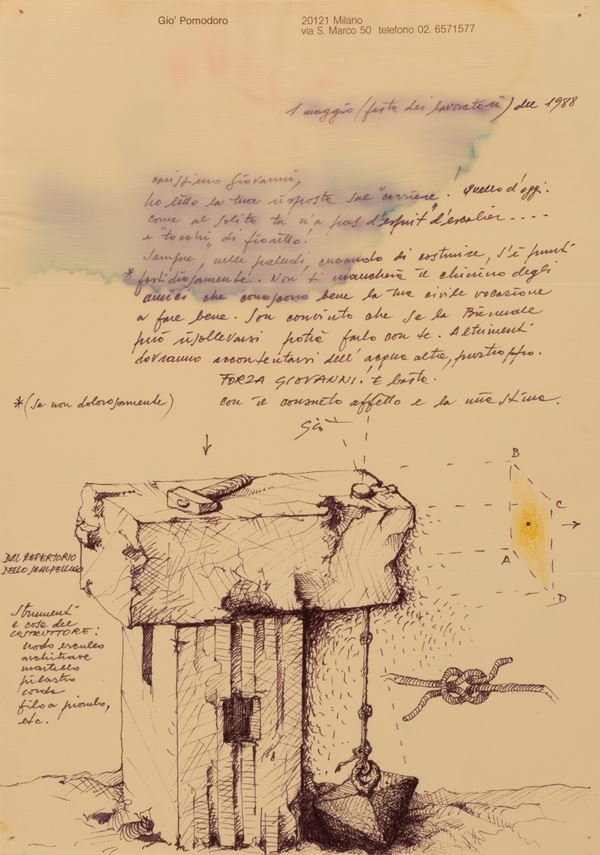 Gio' Pomodoro
20121 Milano
via S. Marco 50 telefono 02. 6571577
1 maggio (festa dei lavoratori) del 1988
carissimo Giovanni,
ho letto la tua risposta sul "corriere"! Quello d'oggi.
come al solito tu n'a pas d'esprit "d'escalier ----
e "tocchi" di fioretto!
Sempre, nelle paludi, cercando di costruire, s'è punti
* fastidiosamente. Non ti mancherà il chinino degli
amici che conoscono bene la tua civile vocazione
a fare bene. Son convinto che se la Biennale
può risollevarsi potrà farlo con te. Altrimenti
dovranno accontentarsi dell'acqua alta, purtroppo.
FORZA GIOVANNI! E basta.
* (se non dolorosamente)
con il consueto affetto e la mia stima.
Giò
B
C
A
D
DAL REPERTORIO
DELLO SCALPELLINO
Strumenti
e cose del
COSTRUTTORE:
nodo erculeo
architrave
martello
pilastro
corda
filo a piombo,
etc.